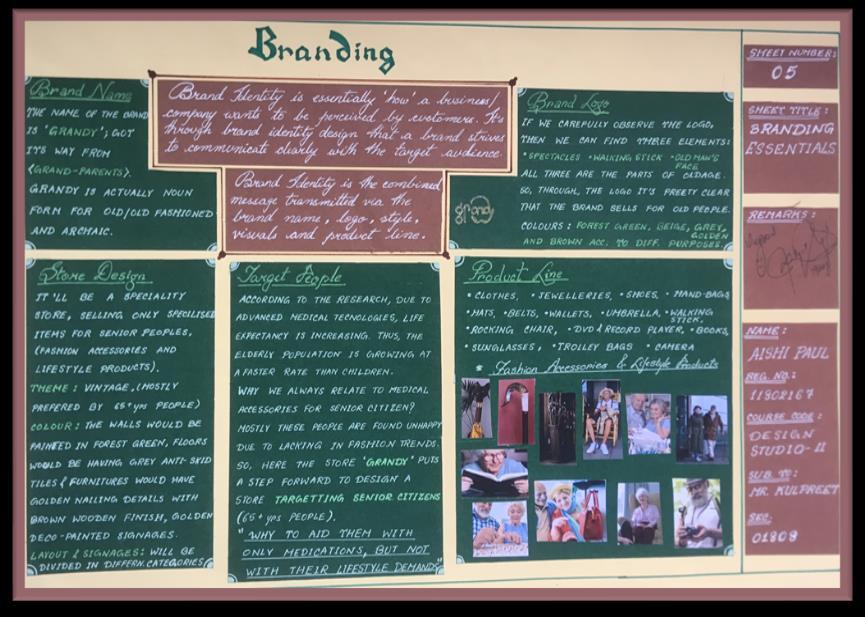 Branding
Brand Name
THE NAME OF THE BRAND
IS 'GRANDY'; GOT
ITS WAY FROM
(GRAND-PARENTS).
GRANDY IS ACTUALLY NOUN
FORM FOR OLD/OLD FASHIONED
AND ARCHAIC.
Brand Identity is essentially 'how' a business/
company wants to be perceived by customers. It's
through brand identity design that a brand strives
to communicate clearly with the target audience.
Brand Identity is the combined
message transmitted via the
brand name, logo, style,
visuals and product line.
Brand Logo
IF WE CAREFULLY OBSERVE THE LOGO,
THEN WE CAN FIND THREE ELEMENTS:
• SPECTACLES • WALKING STICK • OLD MAN'S
FACE
ALL THREE ARE THE PARTS OF OLDAGE.
SO, THROUGH, THE LOGO IT'S PREETY CLEAR
THAT THE BRAND SELLS FOR OLD PEOPLE.
COLOURS : FOREST GREEN, BEIGE, GREY,
GOLDEN
AND BROWN ACC. TO DIFF. PURPOSES.
grandy
Store Design
IT'LL BE A SPECIALITY
STORE, SELLING ONLY SPECILISED
ITEMS FOR SENIOR PEOPLES,
(FASHION ACCESSORIES AND
LIFESTYLE PRODUCTS).
THEME : VINTAGE, (MOSTLY
PREFERED BY 65+ yrs PEOPLE)
COLOUR : THE WALLS WOULD BE
PAINTED IN FOREST GREEN, FLOORS
WOULD BE HAVING GREY ANTI-SKID
TILES & FURNITURES WOULD HAVE
GOLDEN NAILING DETAILS WITH
BROWN WOODEN FINISH, GOLDEN
DECO-PAINTED SIGNAGES.
LAYOUT & SIGNAGES: WILL BE
DIVIDED IN DIFFERN. CATEGORIES
Target People
ACCORDING TO THE RESEARCH, DUE TO
ADVANCED MEDICAL TECNOLOGIES, LIFE
EXPECTANCY IS INCREASING. THUS, THE
ELDERLY POPULATION IS GROWING AT
A FASTER RATE THAN CHILDREN.
WHY WE ALWAYS RELATE TO MEDICAL
ACCESSORIES FOR SENIOR CITIZEN?
MOSTLY THESE PEOPLE ARE FOUND UNHAPPY
DUE TO LACKING IN FASHION TRENDS.
SO, HERE THE STORE 'GRANDY' PUTS
A STEP FORWARD TO DESIGN A
STORE TARGETTING SENIOR CITIZENS
(65+ yrs PEOPLE).
" WHY TO AID THEM WITH
ONLY MEDICATIONS, BUT NOT
WITH THEIR LIFESTYLE DEMANDS"
Product Line
• CLOTHES, • JEWELLERIES, • SHOES, • HAND-BAGS
• HATS, • BELTS, • WALLETS, • UMBRELLA, • WALKING
STICK,
• ROCKING CHAIR, • DVD & RECORD PLAYER, • BOOKS,
• SUNGLASSES, • TROLLEY BAGS • CAMERA
* Fashion Accessories & Lifestyle Products
SHEET NUMBER:
05
SHEET TITLE :
BRANDING
ESSENTIALS
REMARKS :
NAME :
AISHI PAUL
REG. NO.:
11902167
COURSE CODE :
DESIGN
STUDIO-II
SUB. TO :
MR. KULPREET
SEC:
01809